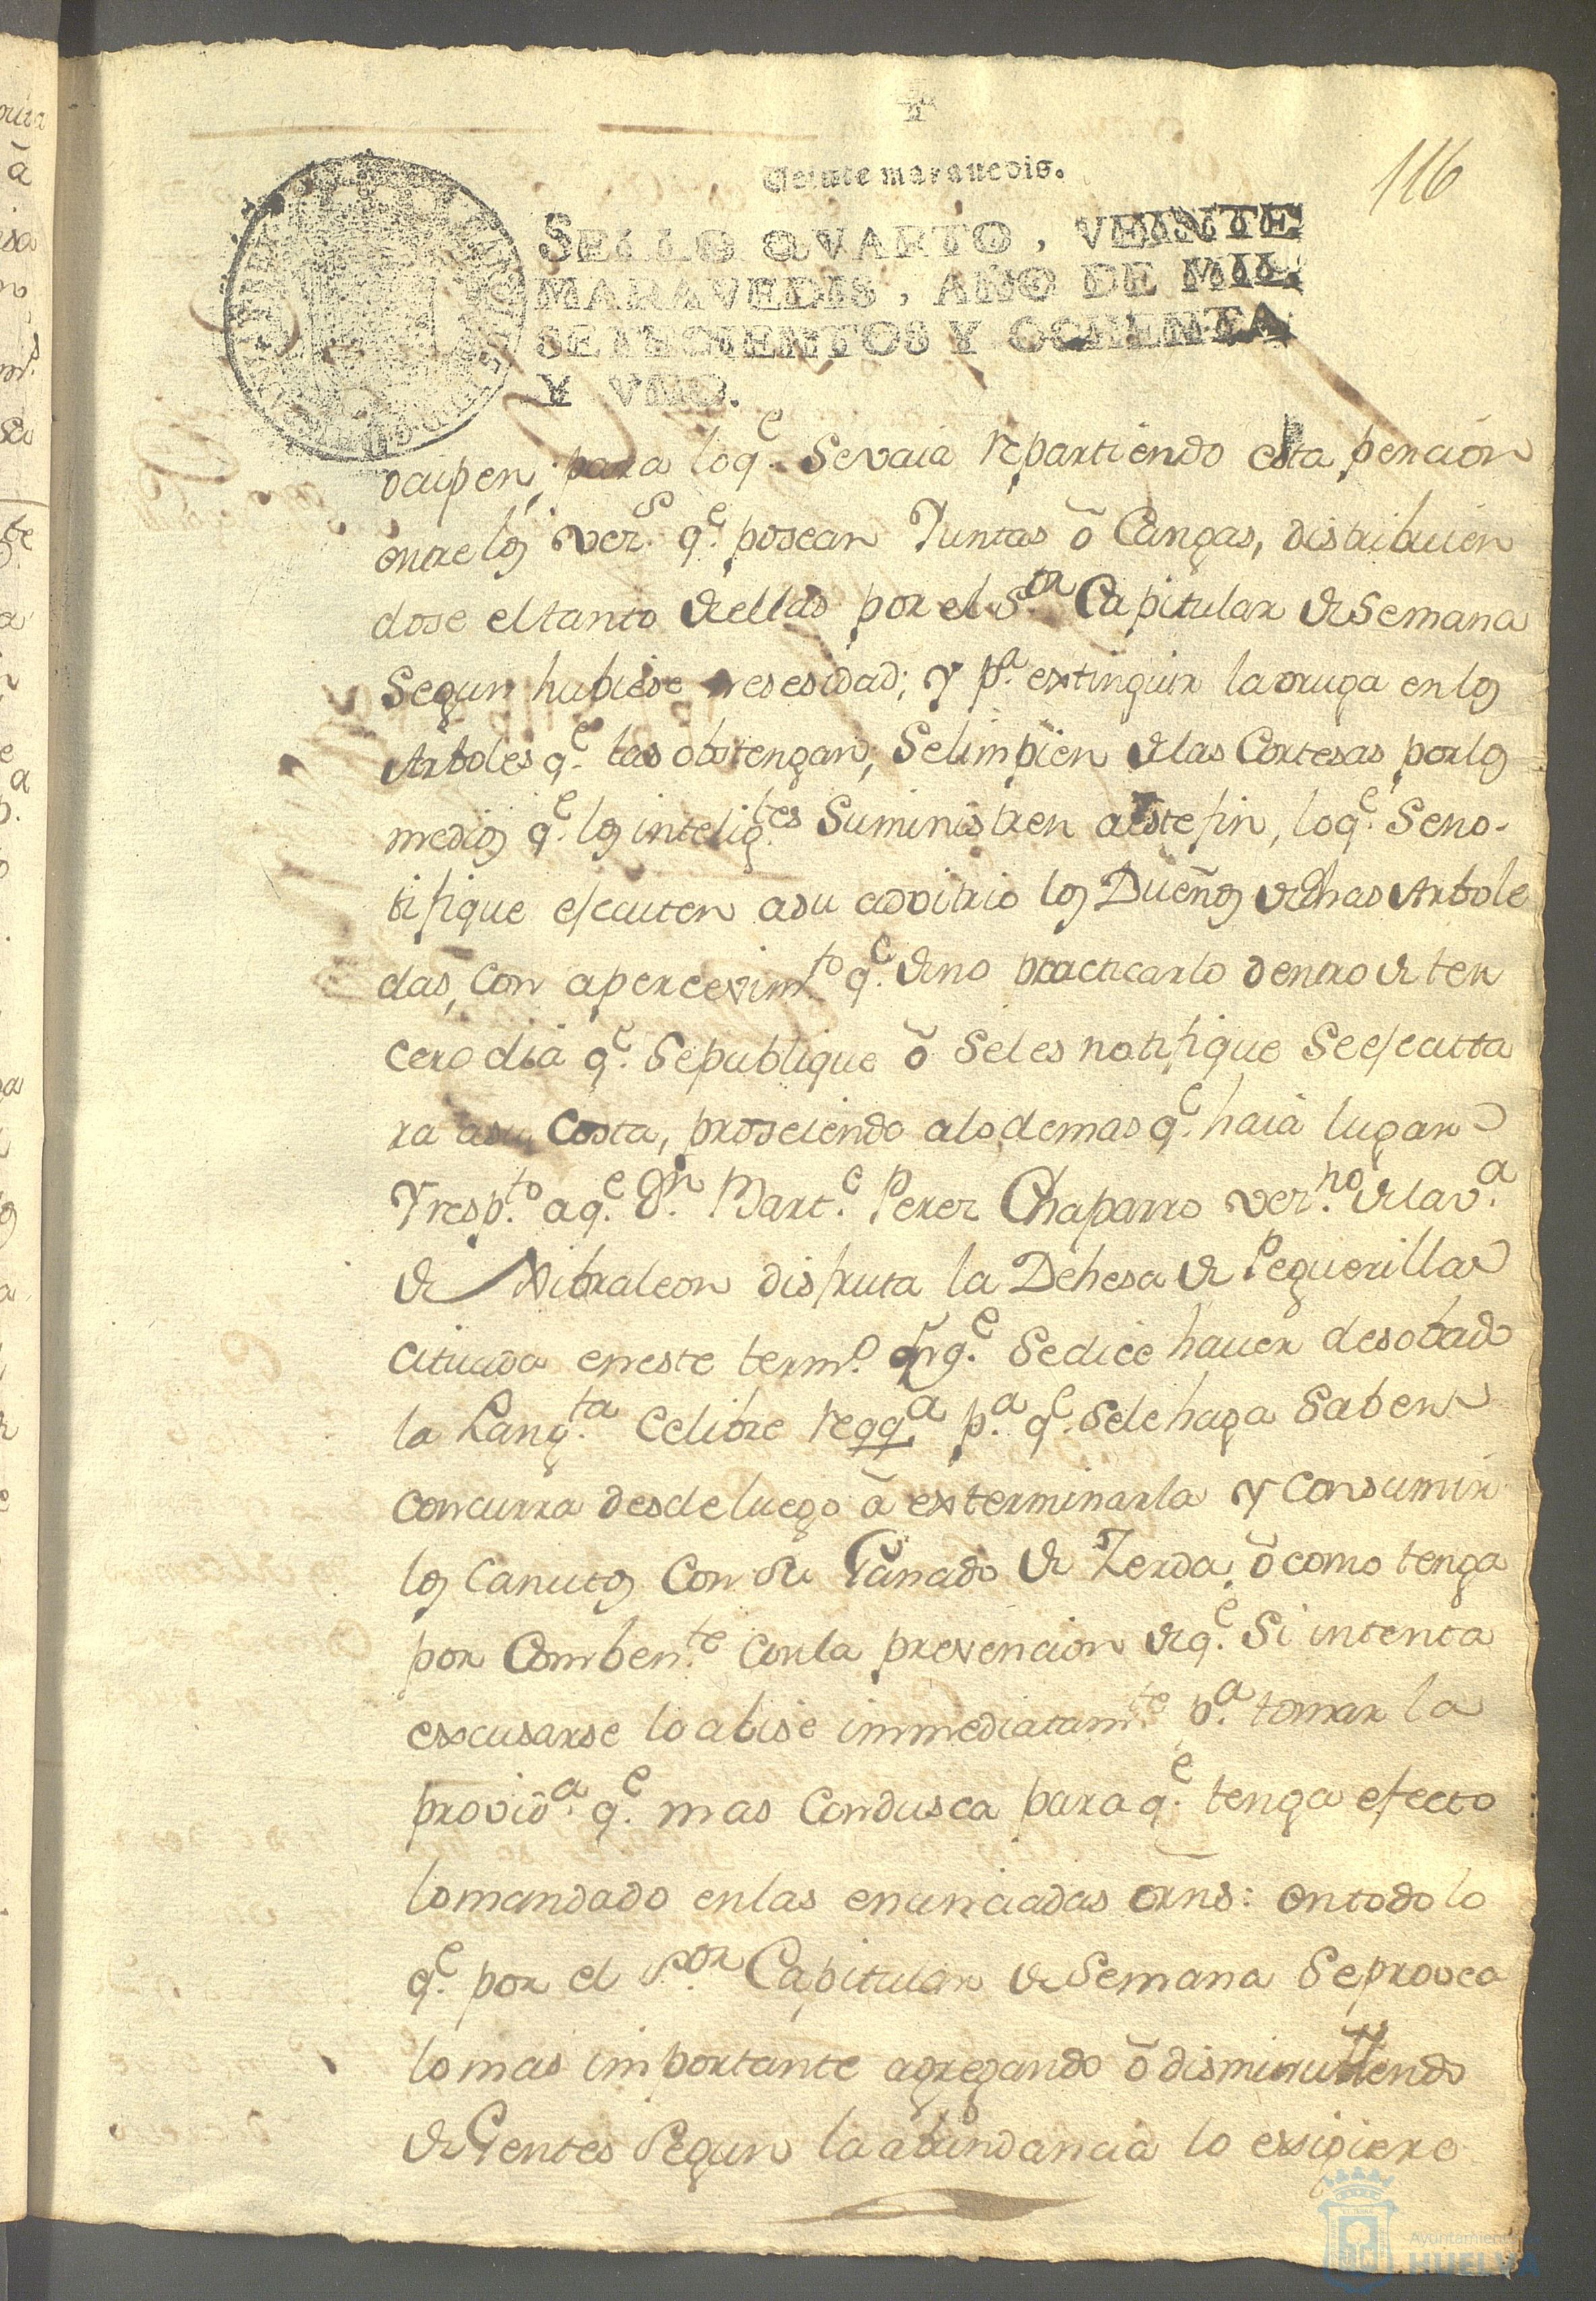 116
Veinte maravedis.
SELLO QVARTO, VEINTE
MARAVEDIS, AÑO DE MIL
SETECIENTOS Y OCHENTA
Y VNO.
ocupen; para loq.e Sevaia repartiendo esta pencion
entrelos vez.s q.e posean Yuntas ô Cangas, distribuien
dose eltanto dellas por el S.or Capitular de Semana
Segun hubiese nesesidad; y p.a extinguir laoruga enlos
Arboles q.e las obtengan, Selimpien delas Cortesas porlos
medios q.e los intelig.tes Suministren aestefin, loq.e Seno-
tifique ejecuten asu advitrio los Dueños de dhas Arbole
das, con apercevim.to q.e deno practicarlo dentro de ter
cerodia q.e Sepublique ô Seles notifique Seejecutta
ra asu Costa, prosciendo alodemas q.e haia lugar
Y resp.to aq.e D.n Bart.e Perez Chaparro vez.no dela v.a
de Gibraleon disfruta la Dehesa de Peguerillas
cituada eneste term.o enq.e Sedice haver desobado
la Lang.ta Celibre reqq.a p.a q.e Selehaga Saber
concurra desdeluego â exterminarla y consumir
los Canutos Con su Ganado de Zerda, ô como tenga
por Comben.te conla prevencion deq.e Si intenta
excusarse lo abise immediatam.te p.a tomar la
provid.a q.e mas Condusca paraq.e tenga efecto
lomandado enlas enunciadas orns: entodolo
q.e por el S.or Capitular de Semana Seprovea
lomas importante agregando ô disminuiendo
de Gentes Segun laabundancia lo exsigiere
Ayuntamiento de
HUELVA